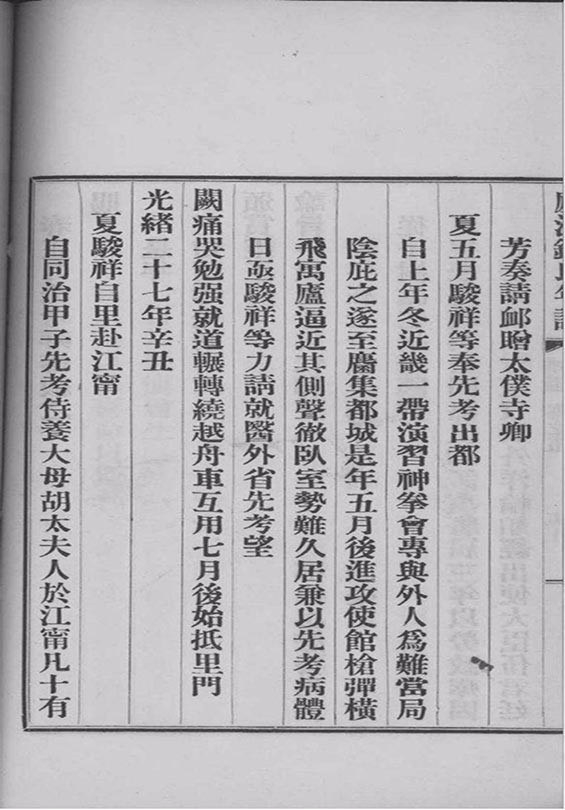 芳奏請卹贈太僕寺卿
夏五月駿祥等奉先考出都
自上年冬近畿一帶演習神拳會專與外人爲難當局
陰庇之遂至麕集都城是年五月後進攻使館槍彈橫
飛寓廬逼近其側聲徹臥室勢難久居兼以先考病體
日亟駿祥等力請就醫外省先考望
闕痛哭勉强就道輾轉繞越舟車互用七月後始抵里門
光緒二十七年辛丑
夏駿祥自里赴江甯
自同治甲子先考侍養大母胡太夫人於江甯凡十有